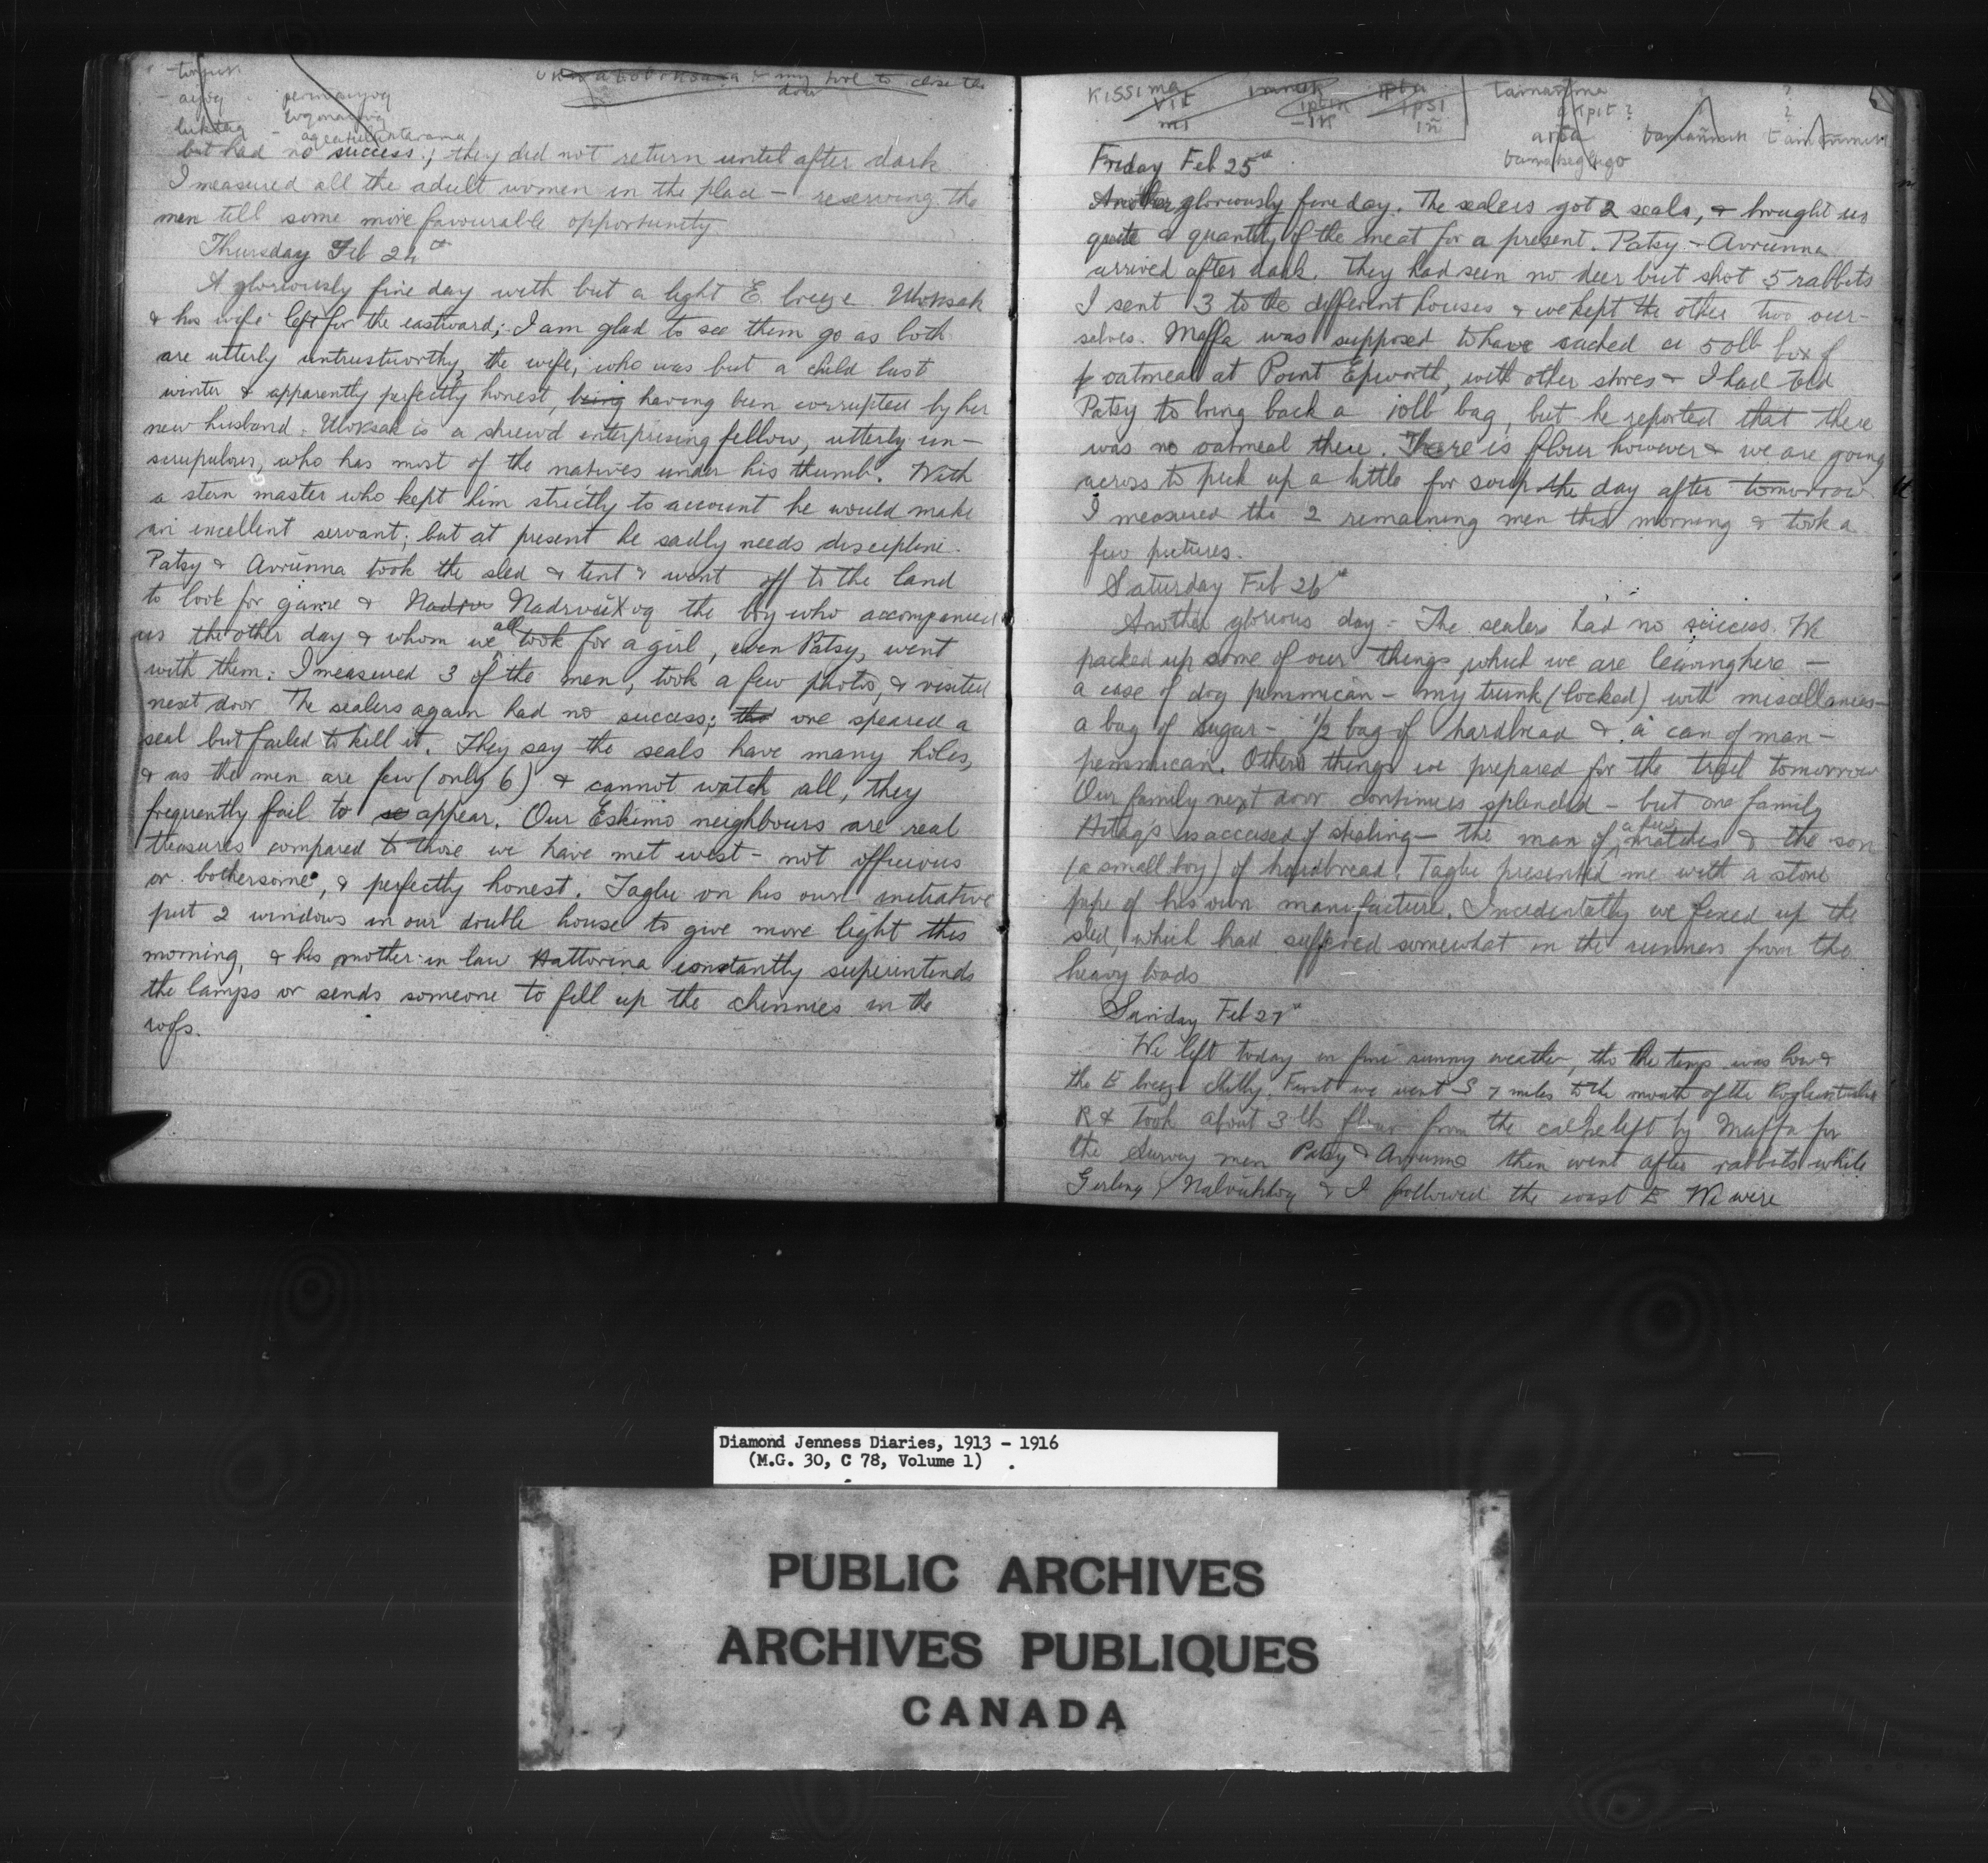 but had no success; they did not return until after dark
I measured all the adult women in the place – reserving the
men till some more favourable opportunity.
Thursday Feb 24th
A gloriously fine day with but a light E. breeze. Uloksak
& his wife left for the eastward; I am glad to see them go as both
are utterly untrustworthy, the wife, who was but a child last
winter & apparently perfectly honest, being having been corrupted by her
new husband. Uloksak is a shrewd enterprising fellow, utterly un-
scrupulous, who has most of the natives under his thumb. With
a stern master who kept him strictly to account he would make
an excellent servant; but at present he sadly needs discipline.
Patsy & Avrunna took the sled & tent & went off to the land
to look for game & the boy who accompanied
us the other day & whom we all took for a girl, even Patsy, went
with them. I measured 3 of the men, took a few photos, & visited
next door. The sealers again had no success; tho one speared a
seal but failed to kill it. They say the seals have many holes,
& as the men are few (only 6) & cannot watch all, they
frequently fail to se appear. Our Eskimo neighbours are real
treasures compared to those we have met west – not officious
or bothersome, & perfectly honest. Taglu on his own initiative
put 2 windows in our double house to give more light this
morning, & his mother in law Hattorina constantly superintends
the lamps or sends someone to fill up the chinnies in the
roofs.
KISSI ma
VIT
mi
Friday Feb 25th
Another gloriously fine day. The sealers got 2 seals, & brought us
quite a quantity of the meat for a present. Patsy – Avrunna
arrived after dark. They had seen no deer but shot 5 rabbits
I sent 3 to the different houses & we kept the other two our-
selves. Maffa was supposed to have cached a 50lb box of
oatmeal at Point Epworth, with other stores & I had told
Patsy to bring back a 10lb bag, but he reported that there
was no oatmeal there. There is flour however & we are going
across to pick up a little for soup the day after tomorrow
I measured the 2 remaining men this morning & took a
few pictures.
Saturday Feb 26th
Another glorious day – The sealers had no success. We
packed up some of our things which we are leaving here –
a case of dog pemmican – my trunk (locked) with miscellanies –
a bag of sugar – 1/2 bag of hardbread & a can of man-
pemmican. Other things we prepared for the trail tomorrow
Our family next door continues splendid – but one family
is accused of stealing – the man of a few matches & the son
(a small boy) of hardbread. Taglu presented me with a stone
pipe of his own manufacture. Incidentally we fixed up the
sled, which had suffered somewhat in the runners from the
heavy loads
Sunday Feb 27th
We left today in fine sunny weather, tho the temp was low &
the E breeze chilly. First we went S 7 miles to the mouth of the
R & took about 3 lbs flour from the cache left by Maffa for
the Survey men Patsy & Avrunna then went after rabbits while
& I followed the coast E We were
Diamond Jenness Diaries, 1913 - 1916
(M.G. 30, C 78, Volume 1)
PUBLIC ARCHIVES
ARCHIVES PUBLIQUES
CANADA